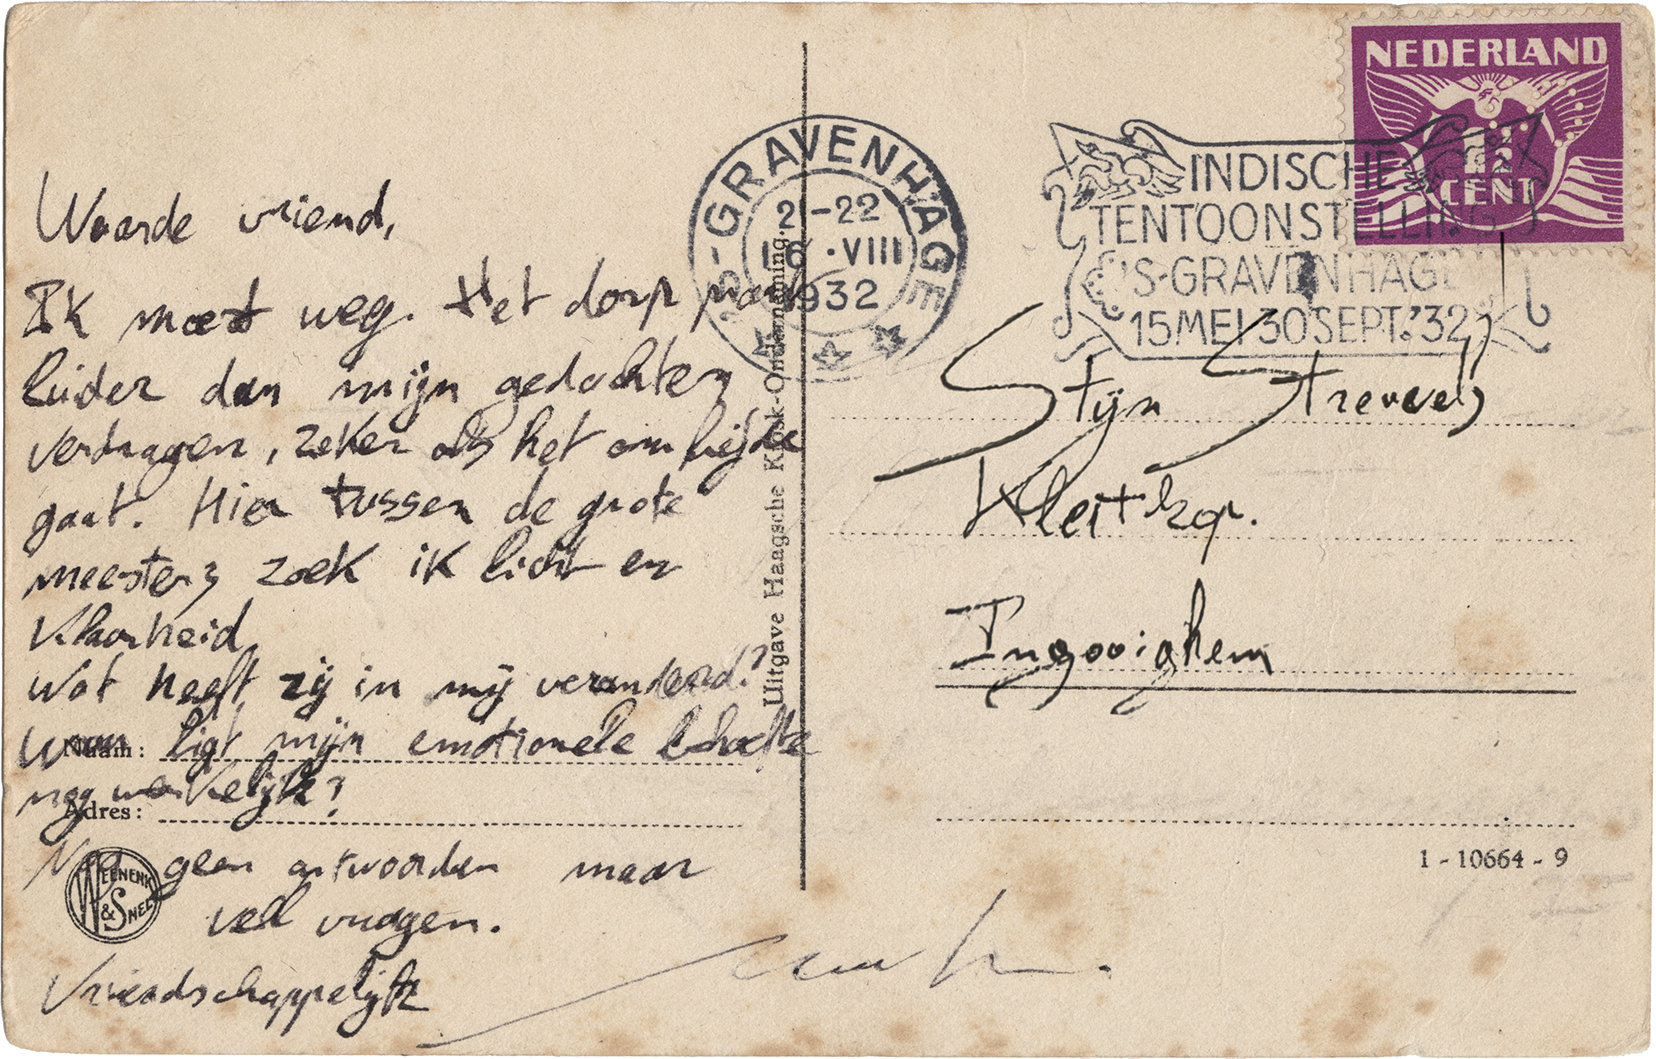 Waarde vriend,
Ik moest weg. Het dorp praat
luider dan mijn gedachten
verdragen, zeker als het om liefde
gaat. Hier tussen de grote
meesters zoek ik licht en
klaarheid
Wat heeft zij in mij veranderd?
Waar ligt mijn emotionele
nog werkelijk?
Nog geen antwoorden maar
veel vragen.
Vriendschappelijk
Naam:
Adres:
WEENENK & SNEL
Uitgave Haagsche Kiosk-Onderneming.
'S-GRAVENHAGE
21-22
16 ·VIII
1932
INDISCHE
TENTOONSTELLING
'S-GRAVENHAGE
15 MEI 30 SEPT. '32
NEDERLAND
1½
CENT
Stijn Streuvels
Ingooighem
1 - 10664 - 9